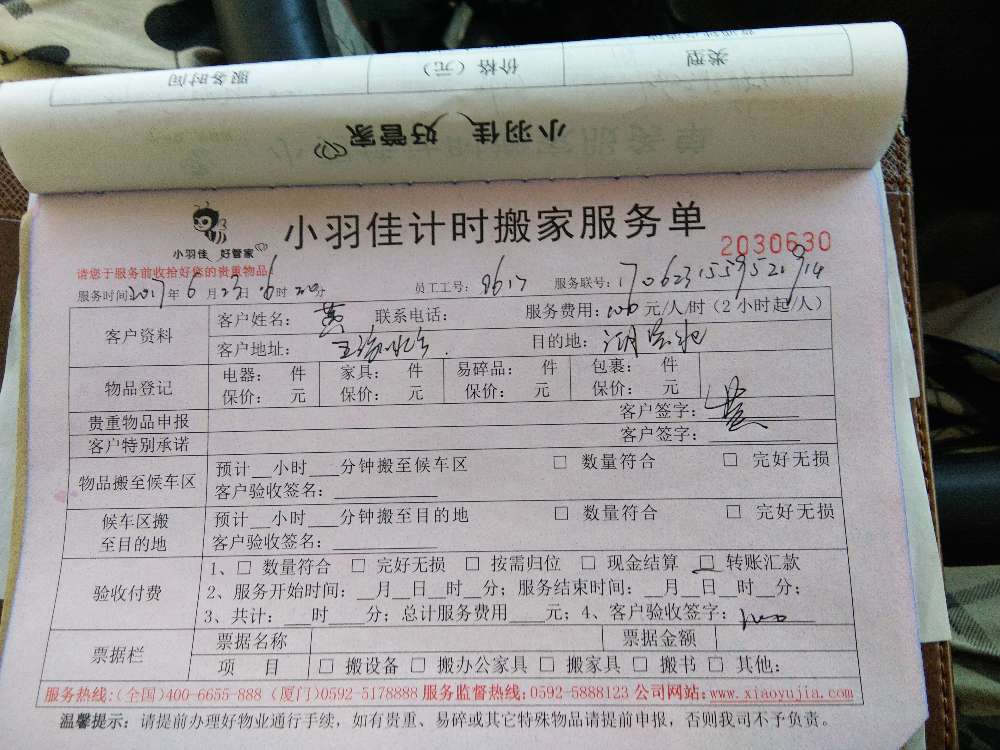 服务时间 价格（元） 类型
小羽佳 好管家
小羽佳计时搬家服务单
小羽佳 好管家
2030630
请您于服务前收拾好您的贵重物品
服务时间2017年6月23日16时 分 员工工号：8617 服务联号：170623155952
客户资料 客户姓名：黄 联系电话： 服务费用：100元/人/时（2小时起/人）
客户地址： 目的地：
物品登记 电器： 件 家具： 件 易碎品： 件 包裹： 件
保价： 元 保价： 元 保价： 元 保价： 元
贵重物品申报 客户签字：黄
客户特别承诺 客户签字：
物品搬至候车区 预计__小时___分钟搬至候车区 □ 数量符合 □ 完好无损
客户验收签名：
候车区搬至目的地 预计__小时___分钟搬至目的地 □ 数量符合 □ 完好无损
客户验收签名：
验收付费 1、□ 数量符合 □ 完好无损 □ 按需归位 □ 现金结算 □ 转账汇款
2、服务开始时间：__月__日__时__分；服务结束时间：__月__日__时__分；
3、共计：___时___分；总计服务费用___元；4、客户验收签字：
票据栏 票据名称 票据金额
项 目 □ 搬设备 □ 搬办公家具 □ 搬家具 □ 搬书 □ 其他：
服务热线：（全国）400-6655-888（厦门）0592-5178888 服务监督热线：0592-5888123 公司网站：www.xiaoyujia.com
温馨提示：请提前办理好物业通行手续，如有贵重、易碎或其它特殊物品请提前申报，否则我司不予负责。